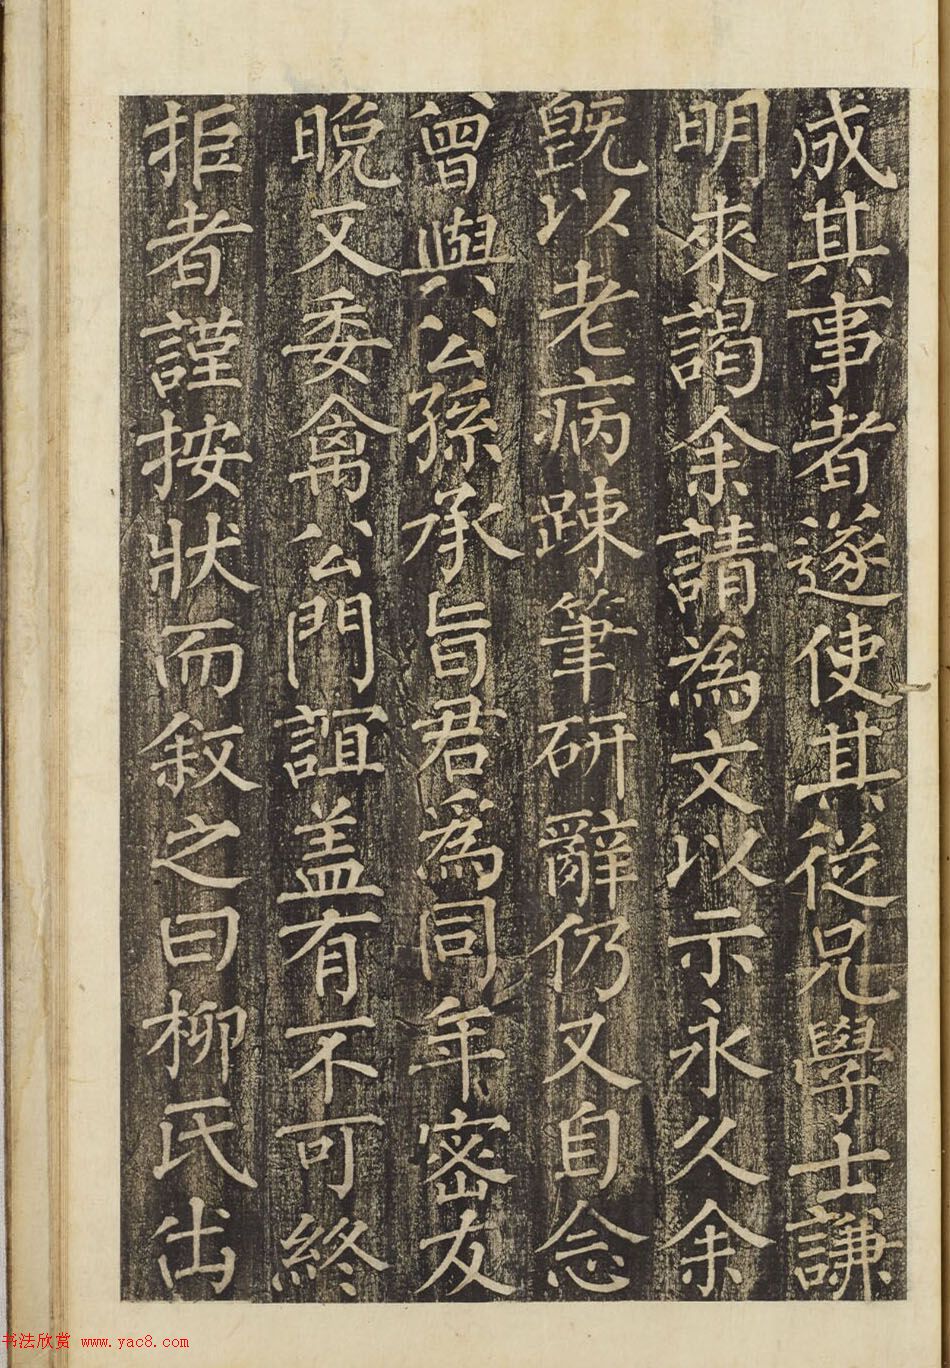 成其事者遂使其從兄學士謙
明來謁余請為文以示永久余
旣以老病踈筆研辭仍又自念
曾與公孫承旨君為同年密友
晩又委禽公門誼盖有不可終
拒者謹按狀而敘之曰柳氏出
书法欣赏 www.yac8.com